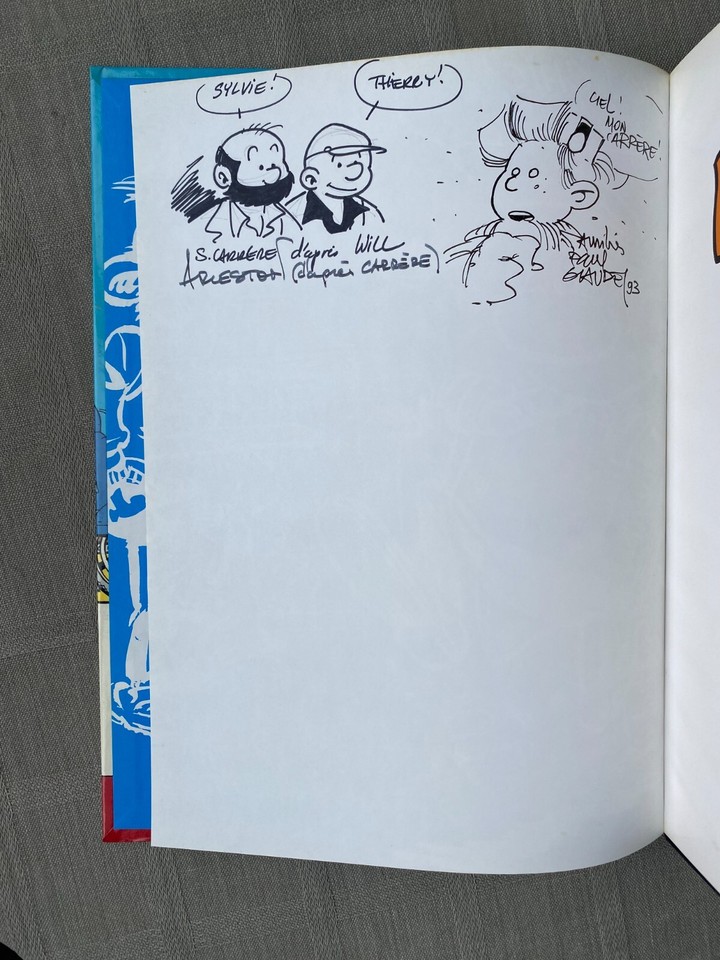 SYLVIE!
THIERRY!
CIEL!
MON
CARRÈRE!
S. CARRERE d'après WILL
ARLESTON (d'après CARRÈRE)
Amitiés
Paul
GLAUDEL
93